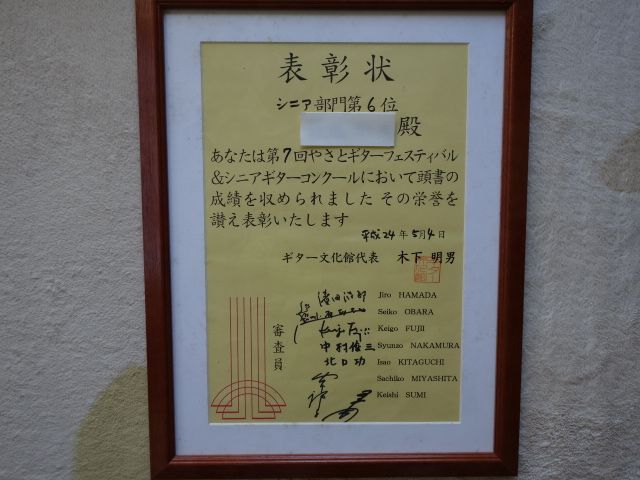 表彰状
シニア部門第6位
殿
あなたは第7回やさとギターフェスティバル
&シニアギターコンクールにおいて頭書の
成績を収められました その栄誉を
讃え表彰いたします
平成24年5月4日
ギター文化館代表 木下 明男
審査員
Jiro HAMADA
Seiko OBARA
Keigo FUJII
中村俊三 Syunzo NAKAMURA
北口功 Isao KITAGUCHI
Sachiko MIYASHITA
Keishi SUMI